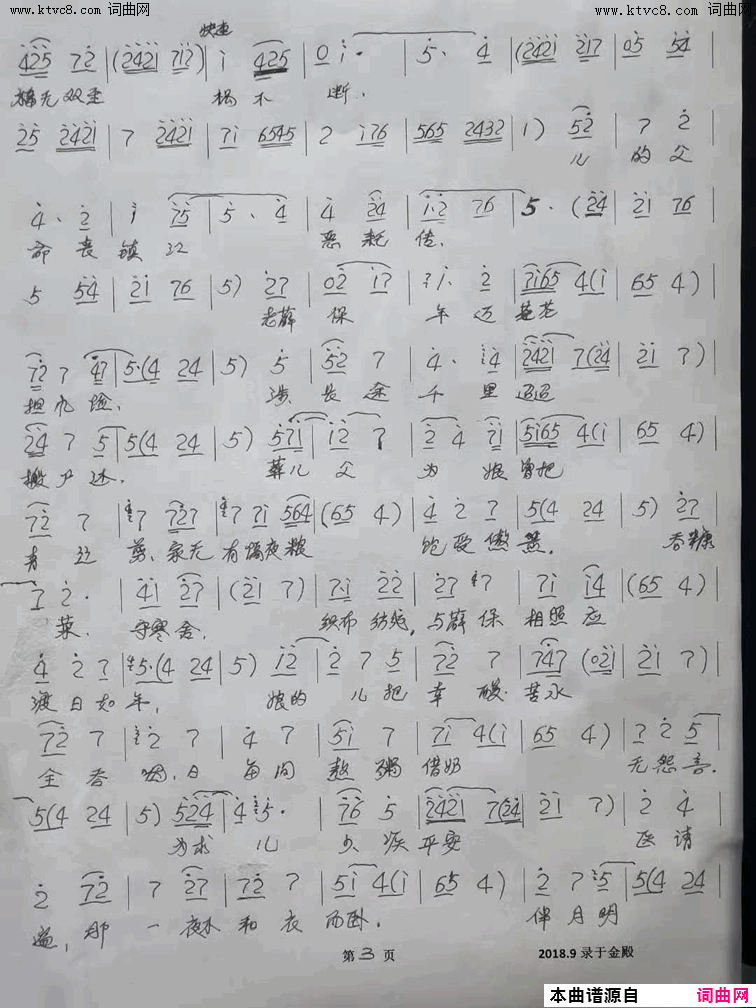 www.ktvc8.com 词曲网 www.ktvc8.com 词曲网
快速
4̇2̇5̇ 7 2̇ | (2̇4̇2̇1̇ 7 1̇ 2̇) | 1̇ 4̇2̇5̇ | 0 1̇· | 5̇· 4̇ | (2̇4̇2̇1̇ 2̇1̇7 | 05̇ 5̇4̇ |
无双 不 断.
2̇5̇ 2̇4̇2̇1̇ | 7 2̇4̇2̇1̇ | 71̇ 6545 | 2 1̇76 | 565 2432 | 1) 5̇2̇ | 7 2̇ |
儿 的父
4̇· 2̇ | 1̇ 7̇5̇ | 5̇· 4̇ | 4̇ 2̇4̇ | 1̇·2̇ 76 | 5· (2̇4̇ | 2̇1̇ 76 |
命丧镇江 恶耗传.
5 5̇4̇ | 2̇1̇ 76 | 5) 2̇7 | 02̇ 1̇7 | 1̇· 2̇ | 71̇65 4(1̇ | 65 4) |
老薛保 年迈苍苍
7 2̇ 7 4̇7 | 5·(4 24 | 5) 5̇ | 5̇2̇ 7 | 4̇· 4̇ | 2̇4̇2̇1̇ 7(2̇4̇ | 2̇1̇ 7) |
担风险, 涉长途 千里迢迢
2̇4̇ 7 5 | 5(4 24 | 5) 571̇ | 1̇2̇ 7 | 2̇ 4̇ 71̇ | 5165 4(1̇ | 65 4) |
搬尸还. 葬儿父 为娘曾把
72̇ 7 | 7 72̇7 | 7 71̇ 564 | (65 4) | 4̇ 2̇ 7 | 5(4 24 | 5) 2̇7 |
青丝剪、家无有隔夜粮 饱受熬煎. 吞糠
7 2̇· | 4̇1̇ 2̇7 | (2̇1̇ 7) | 71̇ 2̇2̇ | 2̇7 7 | 71̇ 1̇4 | (65 4) |
菜. 守寒舍. 织布纺线,与薛保相照应
4̇ 2̇ 7 | 5·(4 24 | 5) 1̇2̇ | 2̇ 7 5 | 72̇ 7 | 74̇7 (02̇1̇ | 2̇1̇ 7) |
渡日如年, 娘的儿把辛酸苦水
72̇ 7 | 2̇ 7 | 4̇ 7 | 51̇ 7 | 71̇ 4(1̇ | 65 4) | 7 2̇ 5 |
全吞咽,日每间熬粥借奶 无怨言.
5(4 24 | 5) 5̇2̇4̇ | 4̇ 5̇· | 76 5 | 2̇4̇2̇1̇ 7(2̇4̇ | 2̇1̇ 7) | 2̇ 4̇ |
为求儿 少疾平安 医请
2̇ 72̇ | 7 2̇7 | 72̇ 7 | 51̇ 4(1̇ | 65 4) | 2̇ 7 5 | 5(4 24 |
遍, 那一夜不和衣而卧. 伴月明
第 3 页 2018.9 录于金殿
本曲谱源自 词曲网